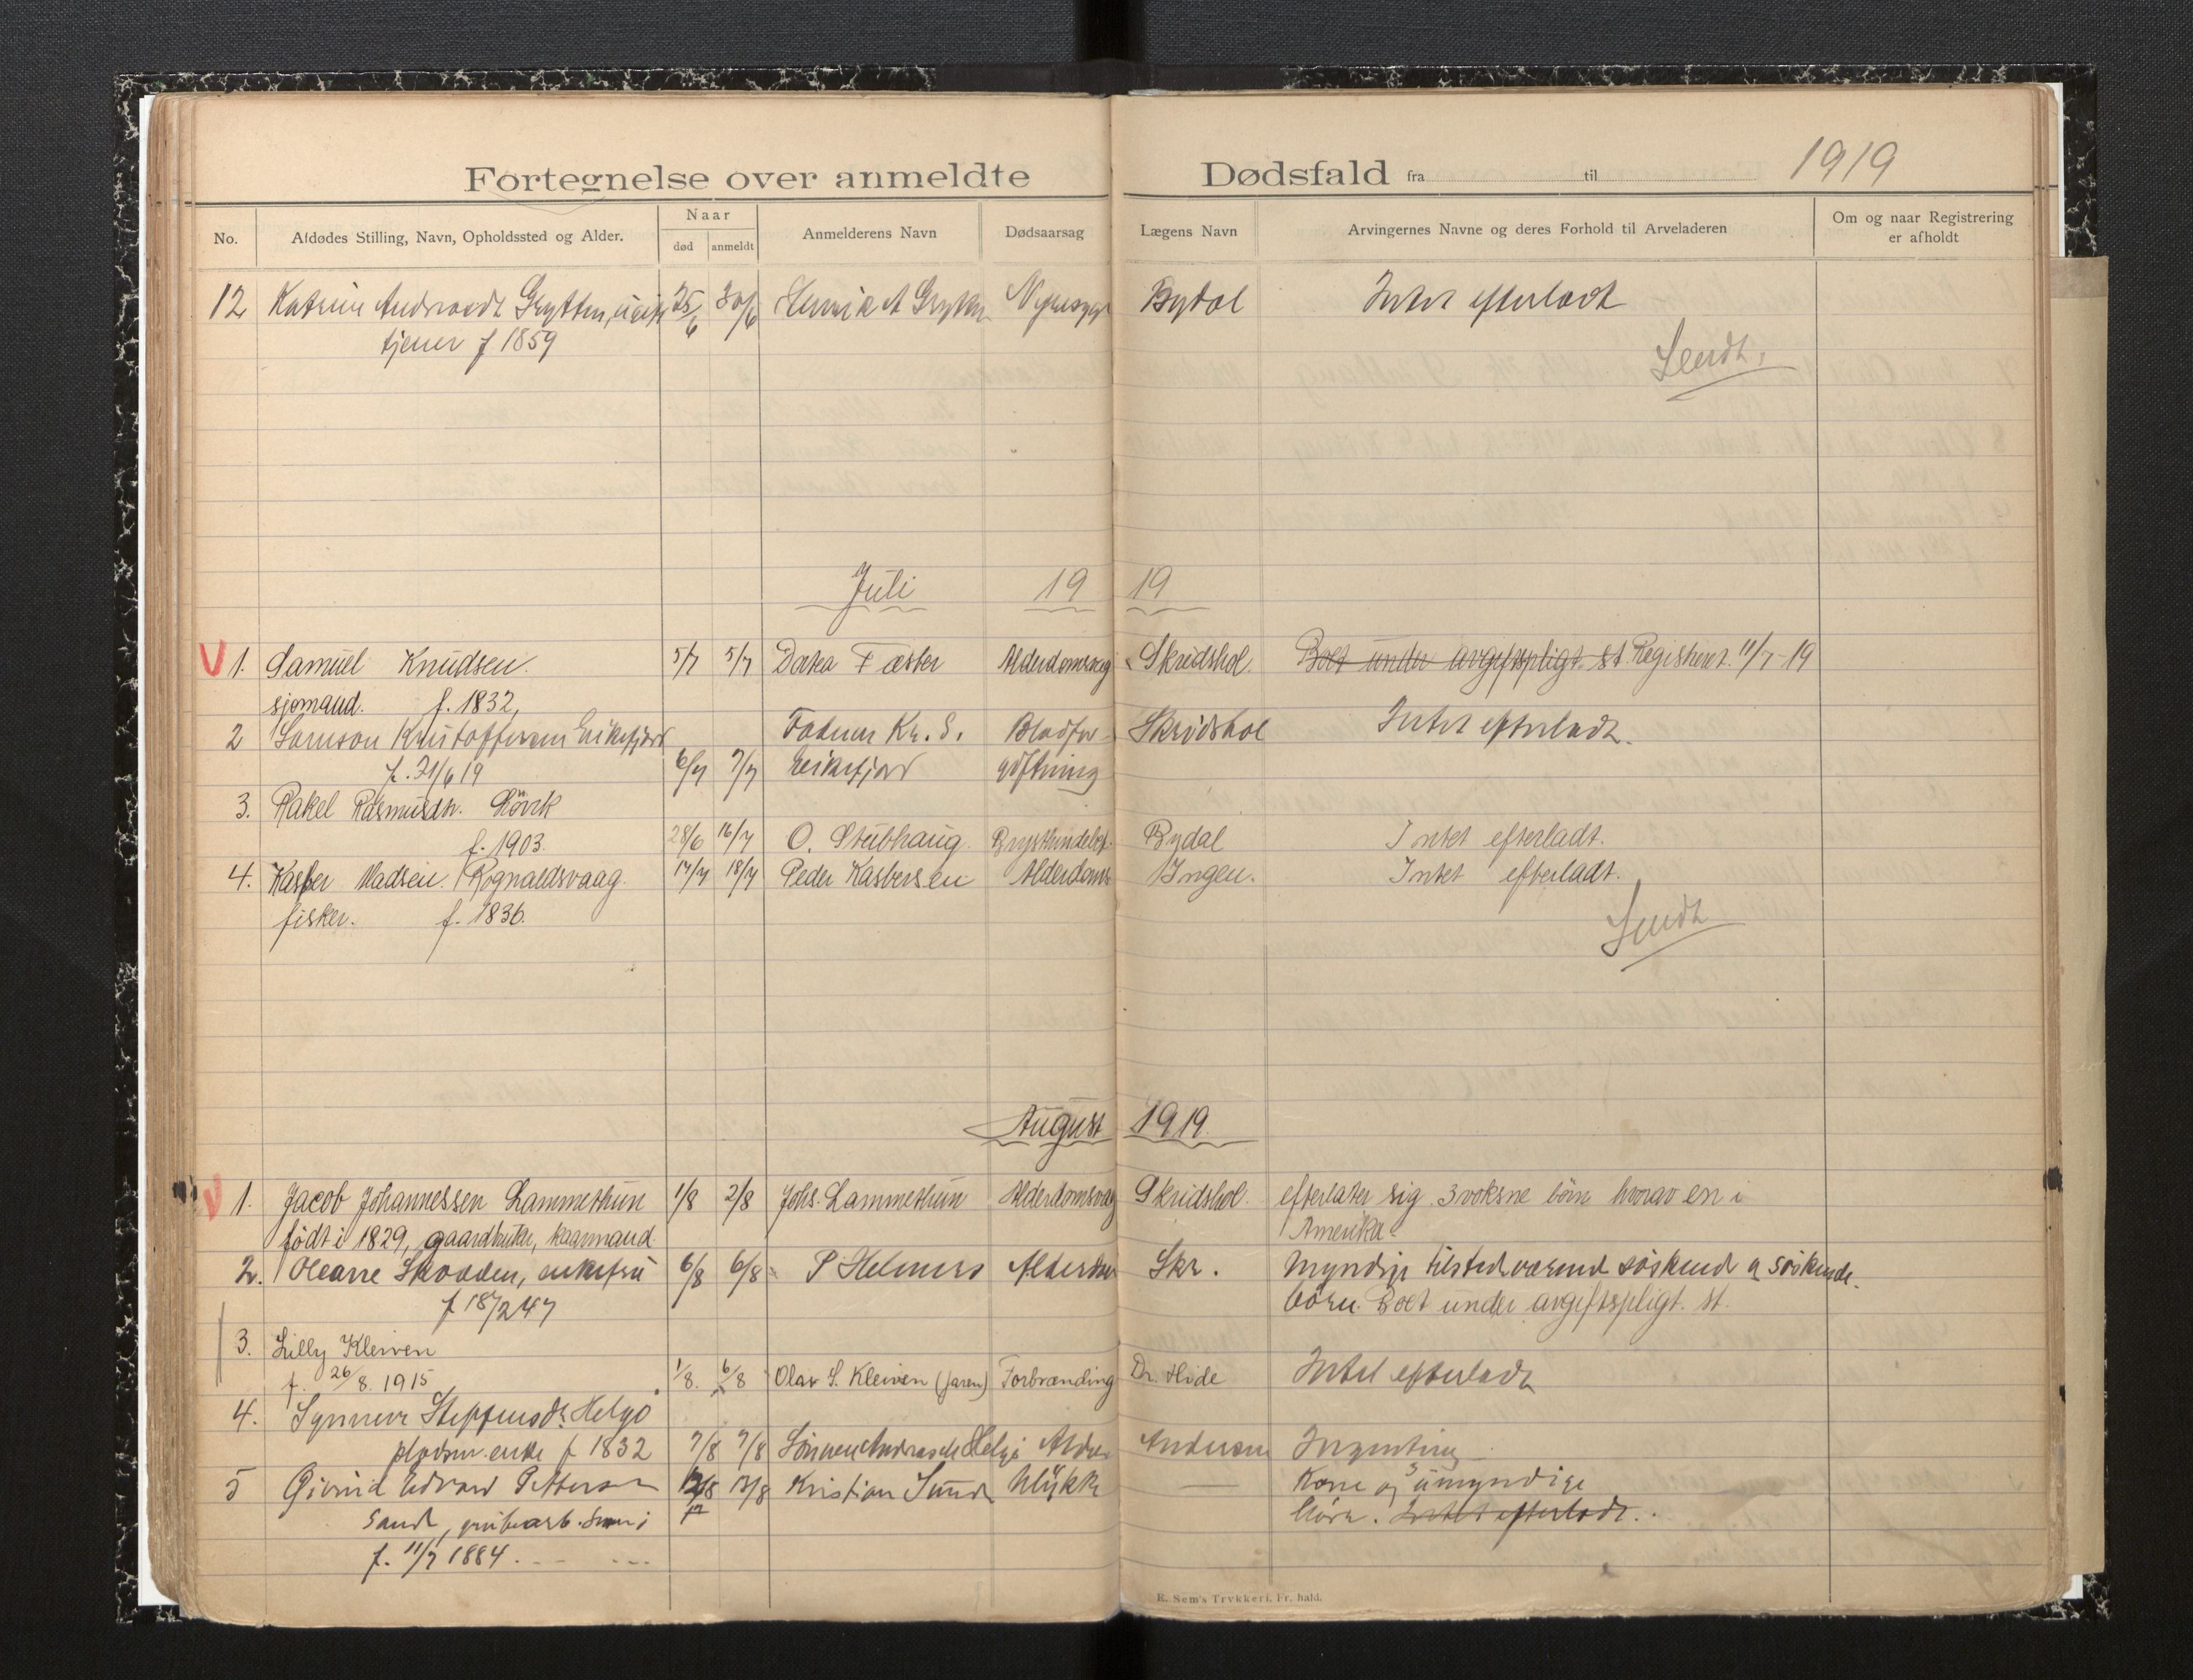 Fortegnelse over anmeldte Dødsfald fra til 1919
No. Afdødes Stilling, Navn, Opholdssted og Alder. Naar død anmeldt Anmelderens Navn Dødsaarsag Lægens Navn Arvingernes Navne og deres Forhold til Arveladeren Om og naar Registrering er afholdt
12 Katrine Andreasdt Grytten, 25/6 30/6 Henrik A Grytten Nyresyge Bydal Intet efterladt
tjener f 1859
Sendt.
Juli 19 19
V 1. Samuel Knudsen. 5/7 5/7 Dortea Fæster Alderdomssvag Skridshol. Boet under avgiftspligt. st. Registrert. 11/7-19
sjømand. f. 1832,
2 Kristoffersen Eikefjord Faderen Kr. S. Blodfor- Skridshol Intet efterladt.
f. 21/6 19 6/7 7/7 Eikefjord giftning
3. Rakel Rasmusdtr. Hövik
f. 1903. 28/6 16/7 O. Stubhaug Brysthindebet. Bydal Intet efterladt.
4. Kasper Madsen. Rognaldsvaag. 17/7 18/7 Peder Kasbersen Alderdoms Ingen. Intet efterladt.
fisker. f. 1836.
Sendt
August 1919.
V 1. Jacob Johannessen Lammethun 1/8 2/8 Johs. Lammethun Alderdomssvag Skridshol. efterlater sig 3 voksne börn hvorav en i
födt i 1829, gaardbruker, kaarmand Amerika
2. Oleane Skodden, enkefru 6/8 6/8 P Helmers Alderdom Skr. Myndige tilstedværend söskend og söskende.
f 18/2 47 börn. Boet under avgiftspligt. st.
3. Lilly Kleiven
f. 26/8. 1915 1/8. 6/8 Olav S. Kleiven (faren) Forbrænding Dr. Hide Intet efterladt
4. Synneve Steffensdt. Helgø
enke f 1832 7/8 7/8 Helgø Alder Andersen Ingenting
5 Eivind Edvard Pettersen 12/8 13/8 Kristian Sunde Ulykke — Kone og 3 umyndige
Sand, börn. Intet efterladt.
f. 11/7 1884.
E. Sem's Trykkeri, Fr. hald.